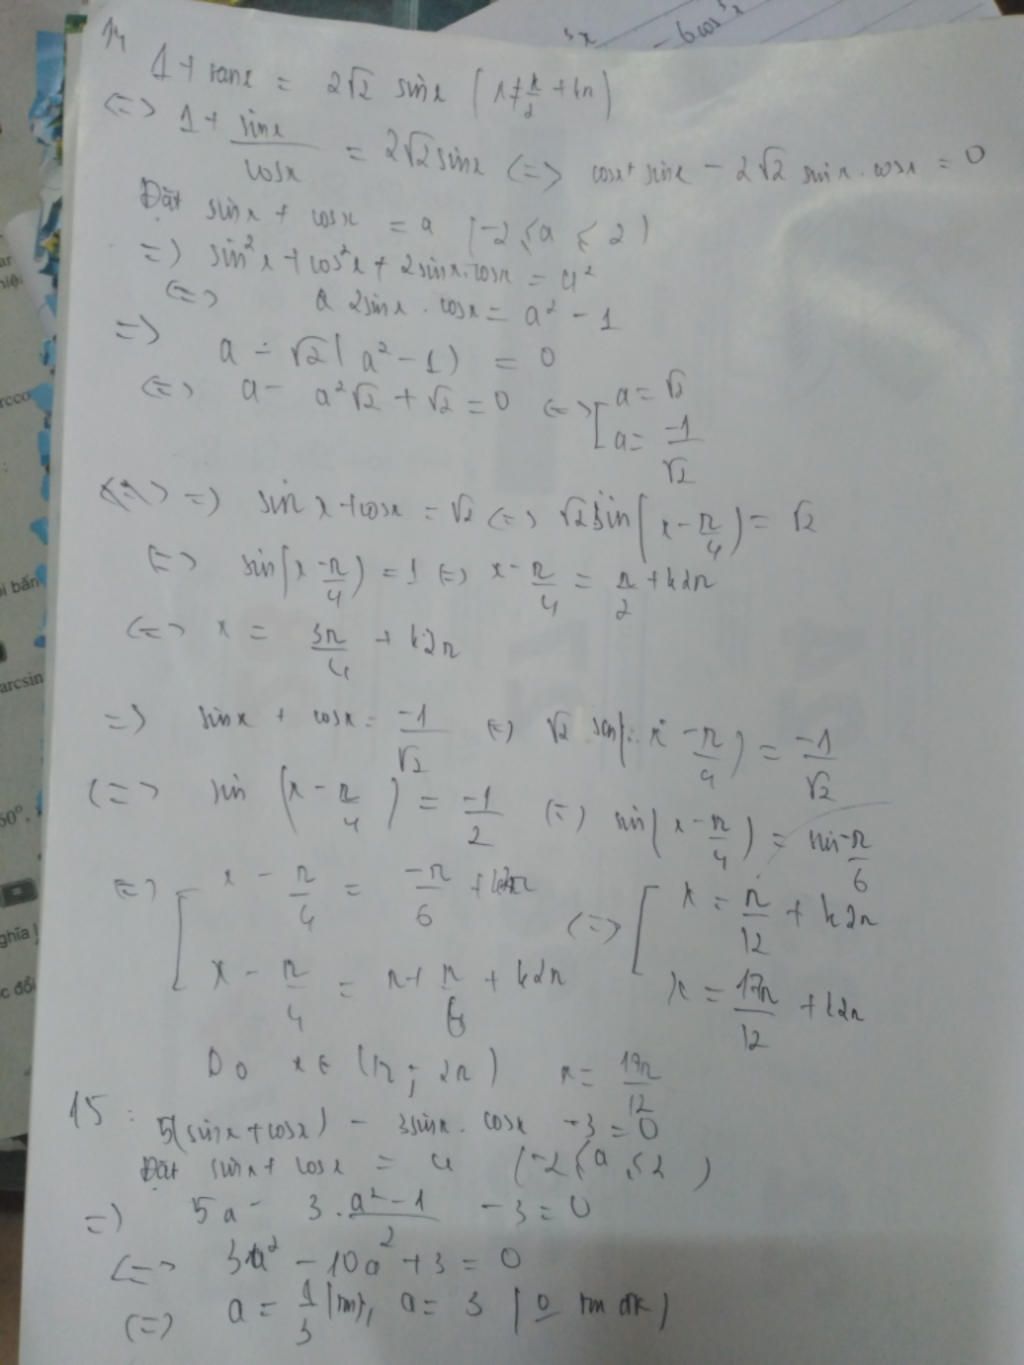 3x - 6cos³x
14
1 + tanx = 2√2 sinx (x ≠ π/2 + kπ)
<=> 1 + sinx/cosx = 2√2 sinx <=> cosx + sinx - 2√2 sinx . cosx = 0
Đặt sinx + cosx = a (-2 ≤ a ≤ 2)
=> sin²x + cos²x + 2sinx.cosx = a²
<=> 2sinx . cosx = a² - 1
=> a - √2 (a² - 1) = 0
<=> a - a²√2 + √2 = 0 <=> [ a = √2
a = -1/√2
=> sinx + cosx = √2 <=> √2 sin(x - π/4) = √2
<=> sin(x - π/4) = 1 <=> x - π/4 = π/2 + k2π
<=> x = 3π/4 + k2π
=> sinx + cosx = -1/√2 <=> √2 sin(x - π/4) = -1/√2
<=> sin (x - π/4) = -1/2 <=> sin(x - π/4) = sin -π/6
<=> [ x - π/4 = -π/6 + k2π <=> [ x = π/12 + k2π
x - π/4 = π + π/6 + k2π x = 17π/12 + k2π
Do x ∈ (π ; 2π) x = 17π/12
15 :
5(sinx + cosx) - 3sinx . cosx - 3 = 0
Đặt sinx + cosx = a (-2 ≤ a ≤ 2)
=> 5a - 3 . a² - 1/2 - 3 = 0
<=> 3a² - 10a + 3 = 0
<=> a = 1/3 (tm), a = 3 (0 tm đk)
ar
hiệ
rcco
ài bấn
arcsin
60°,
nghĩa
c đổi